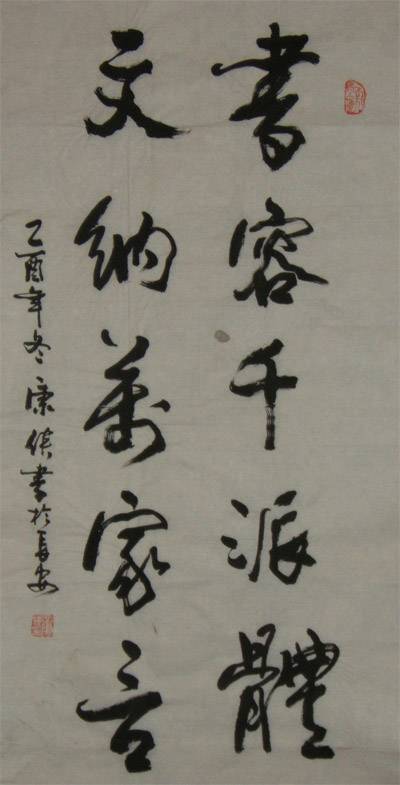 書容千派體
文納萬家言
乙酉年冬康俠書於長安